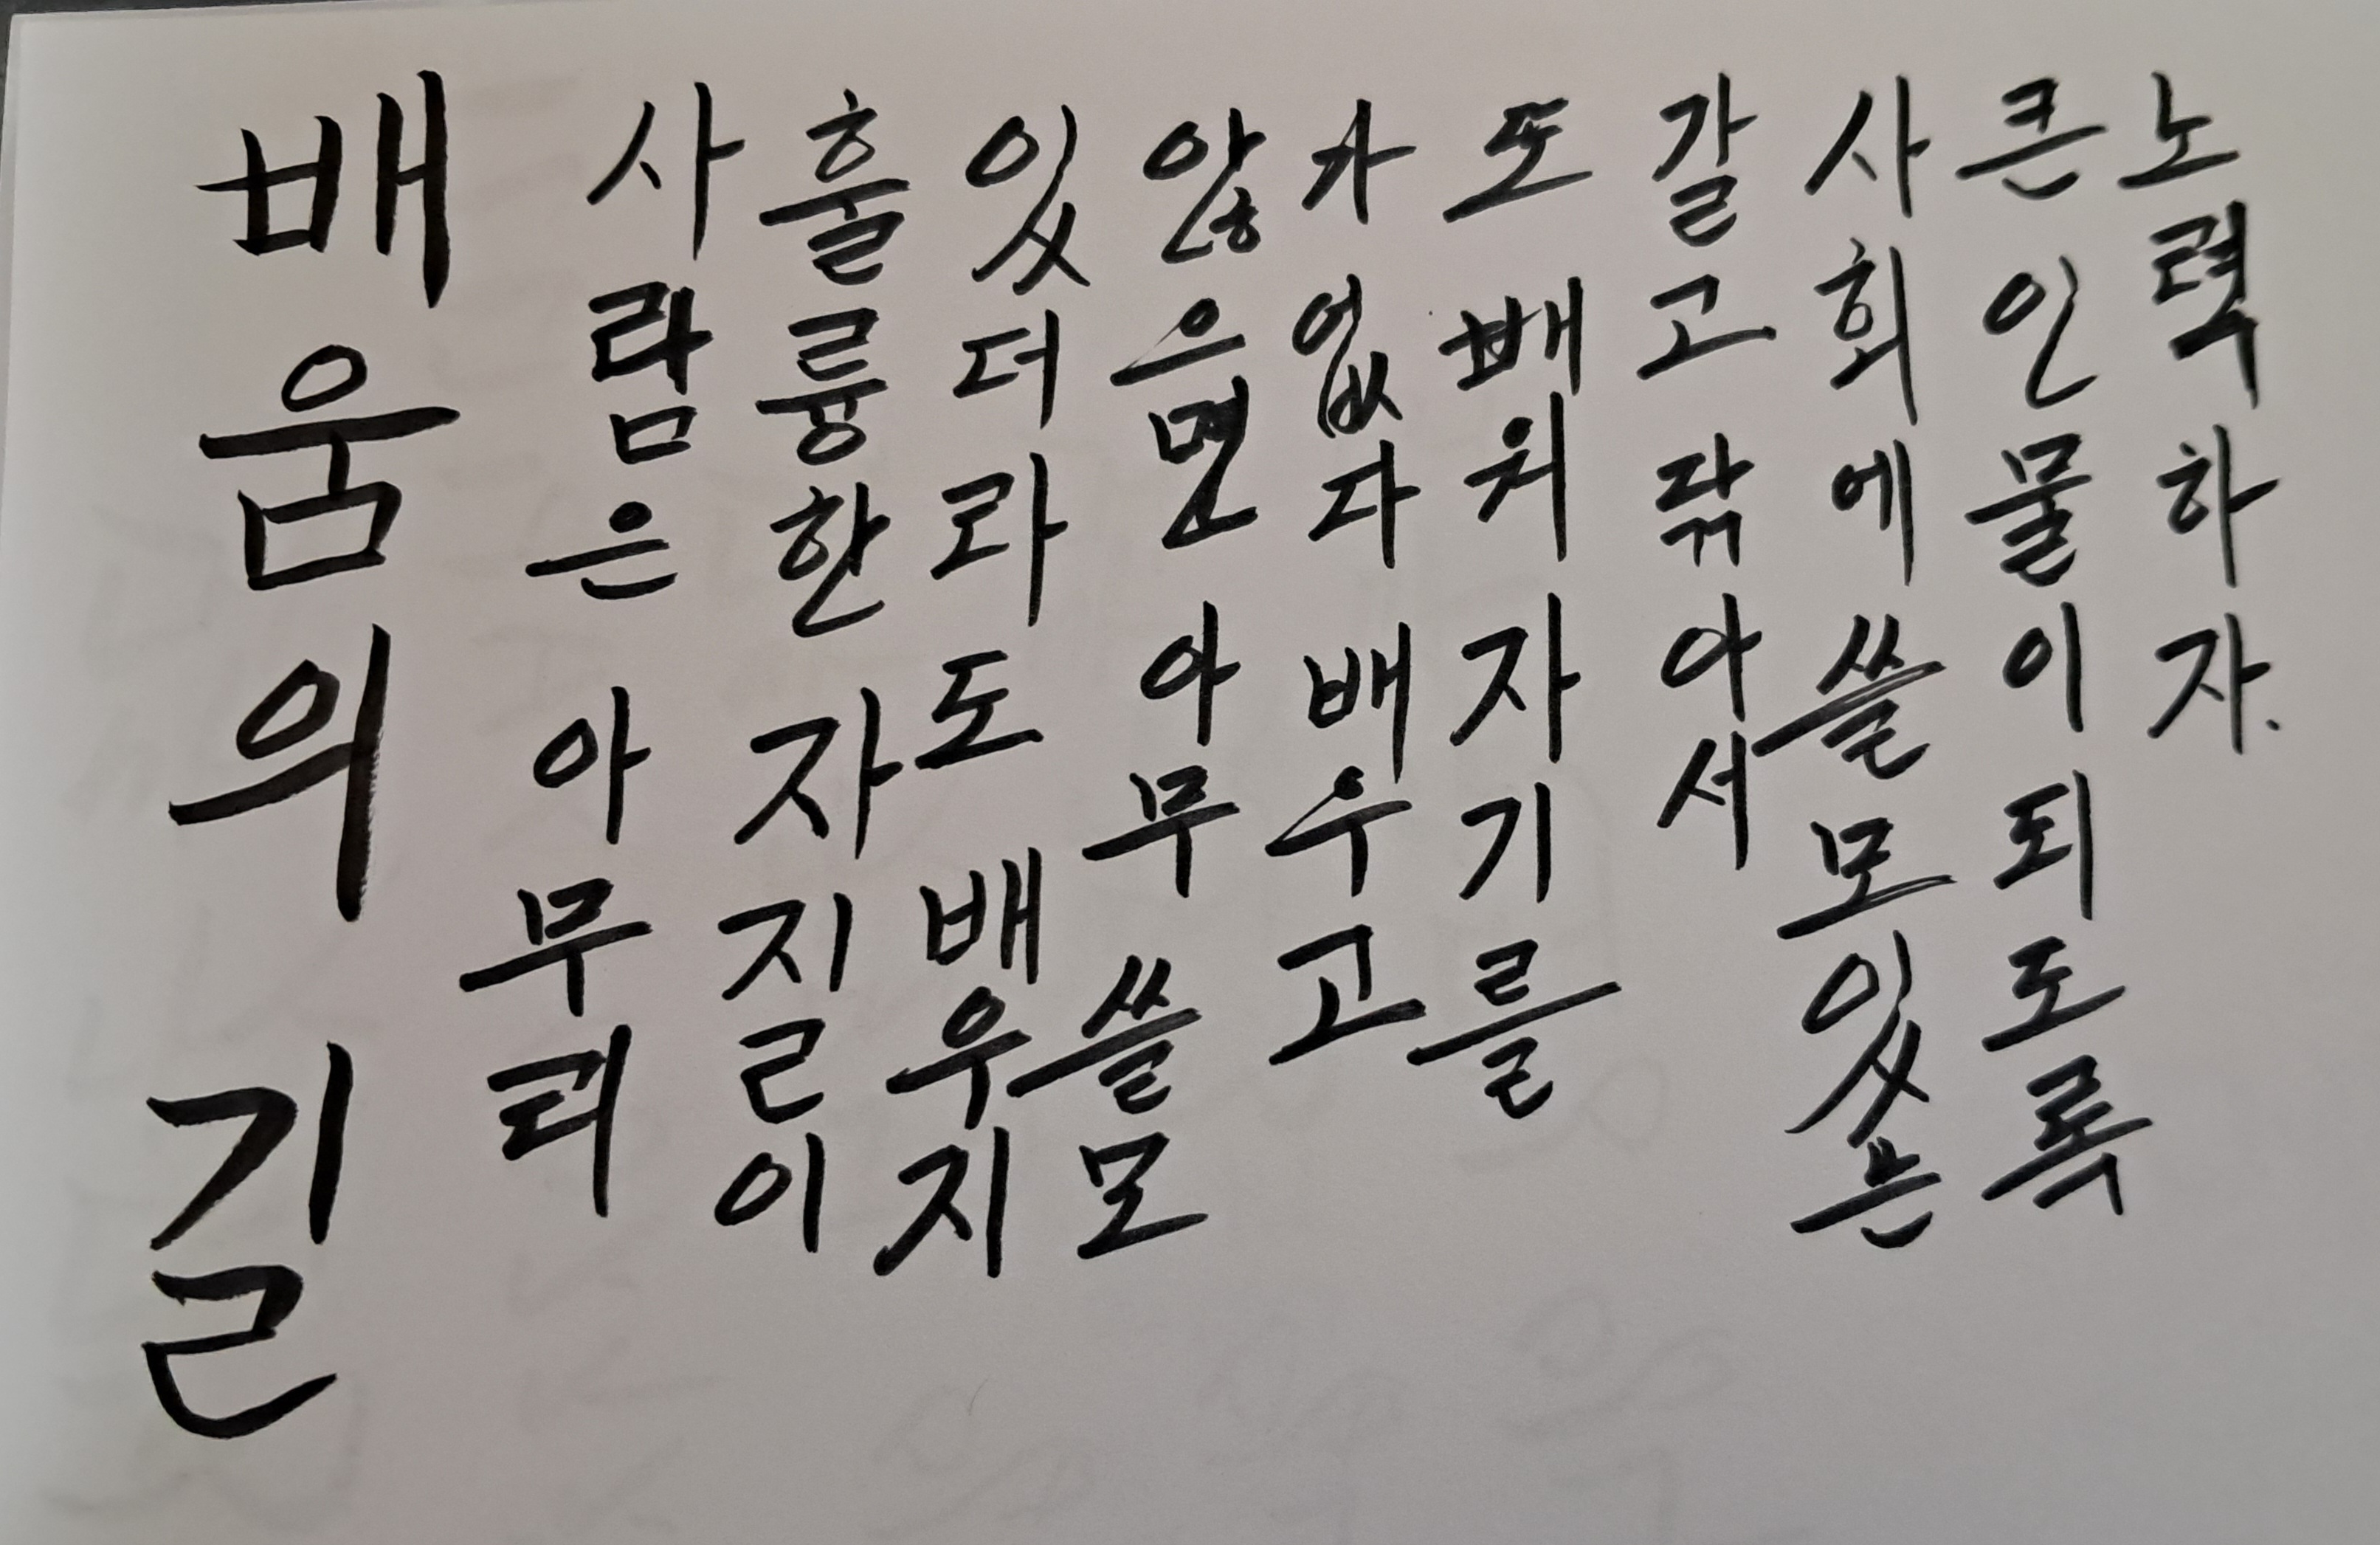 배움의 길
사람은 아무리
훌륭한 자질이
있더라도 배우지
않으면 아무 쓸모
가 없다 배우고
또 배워 자기를
갈고 닦아서
사회에 쓸모있는
큰 인물이 되도록
노력하자.